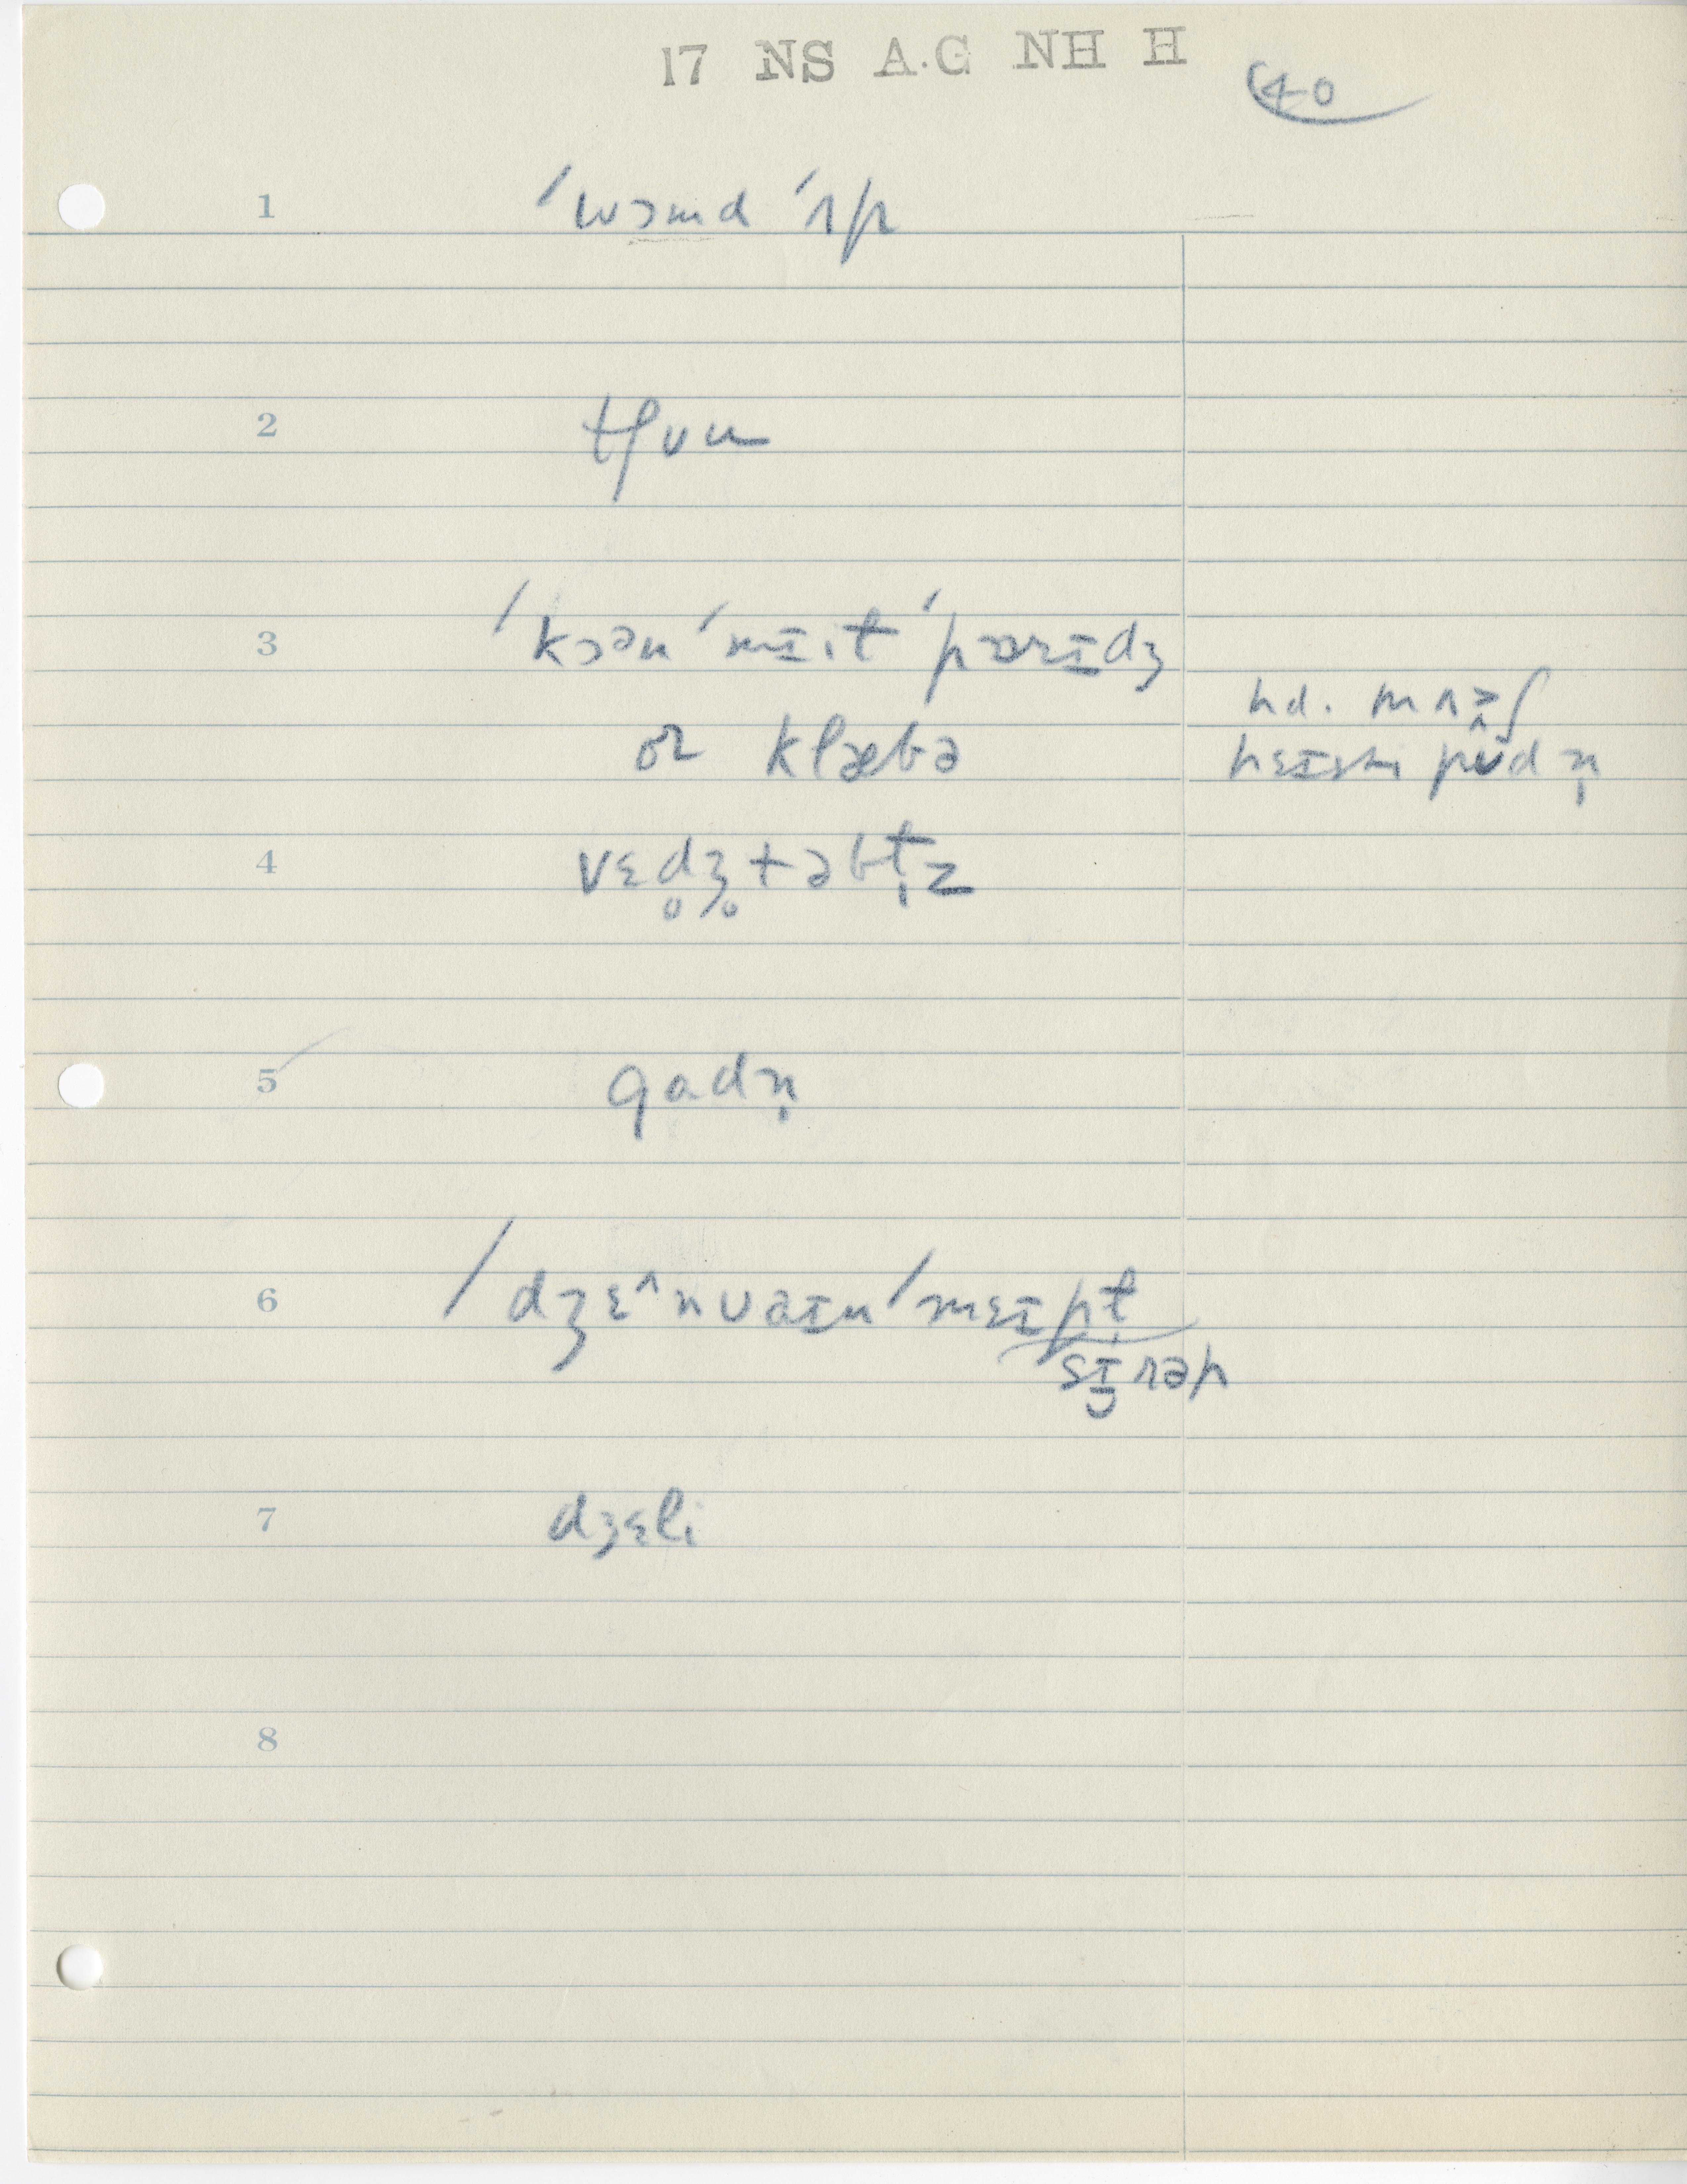 17 NS A.G NH H
40
1 ˈwɔmd ˈʌp
2 tʃuu
3 ˈkɔən ˈmɪit ˈpærɪdʒ
or klæbə
hd. mʌʃ
hɛɪstɪ pʊdn̩
4 vɛd̥ʒ̊təbt̩z
5 gadn̩
6 ˈdʒɛ^nuaɪn ˈmɛɪpt̩
sɪrəp
7 dʒɛli
8